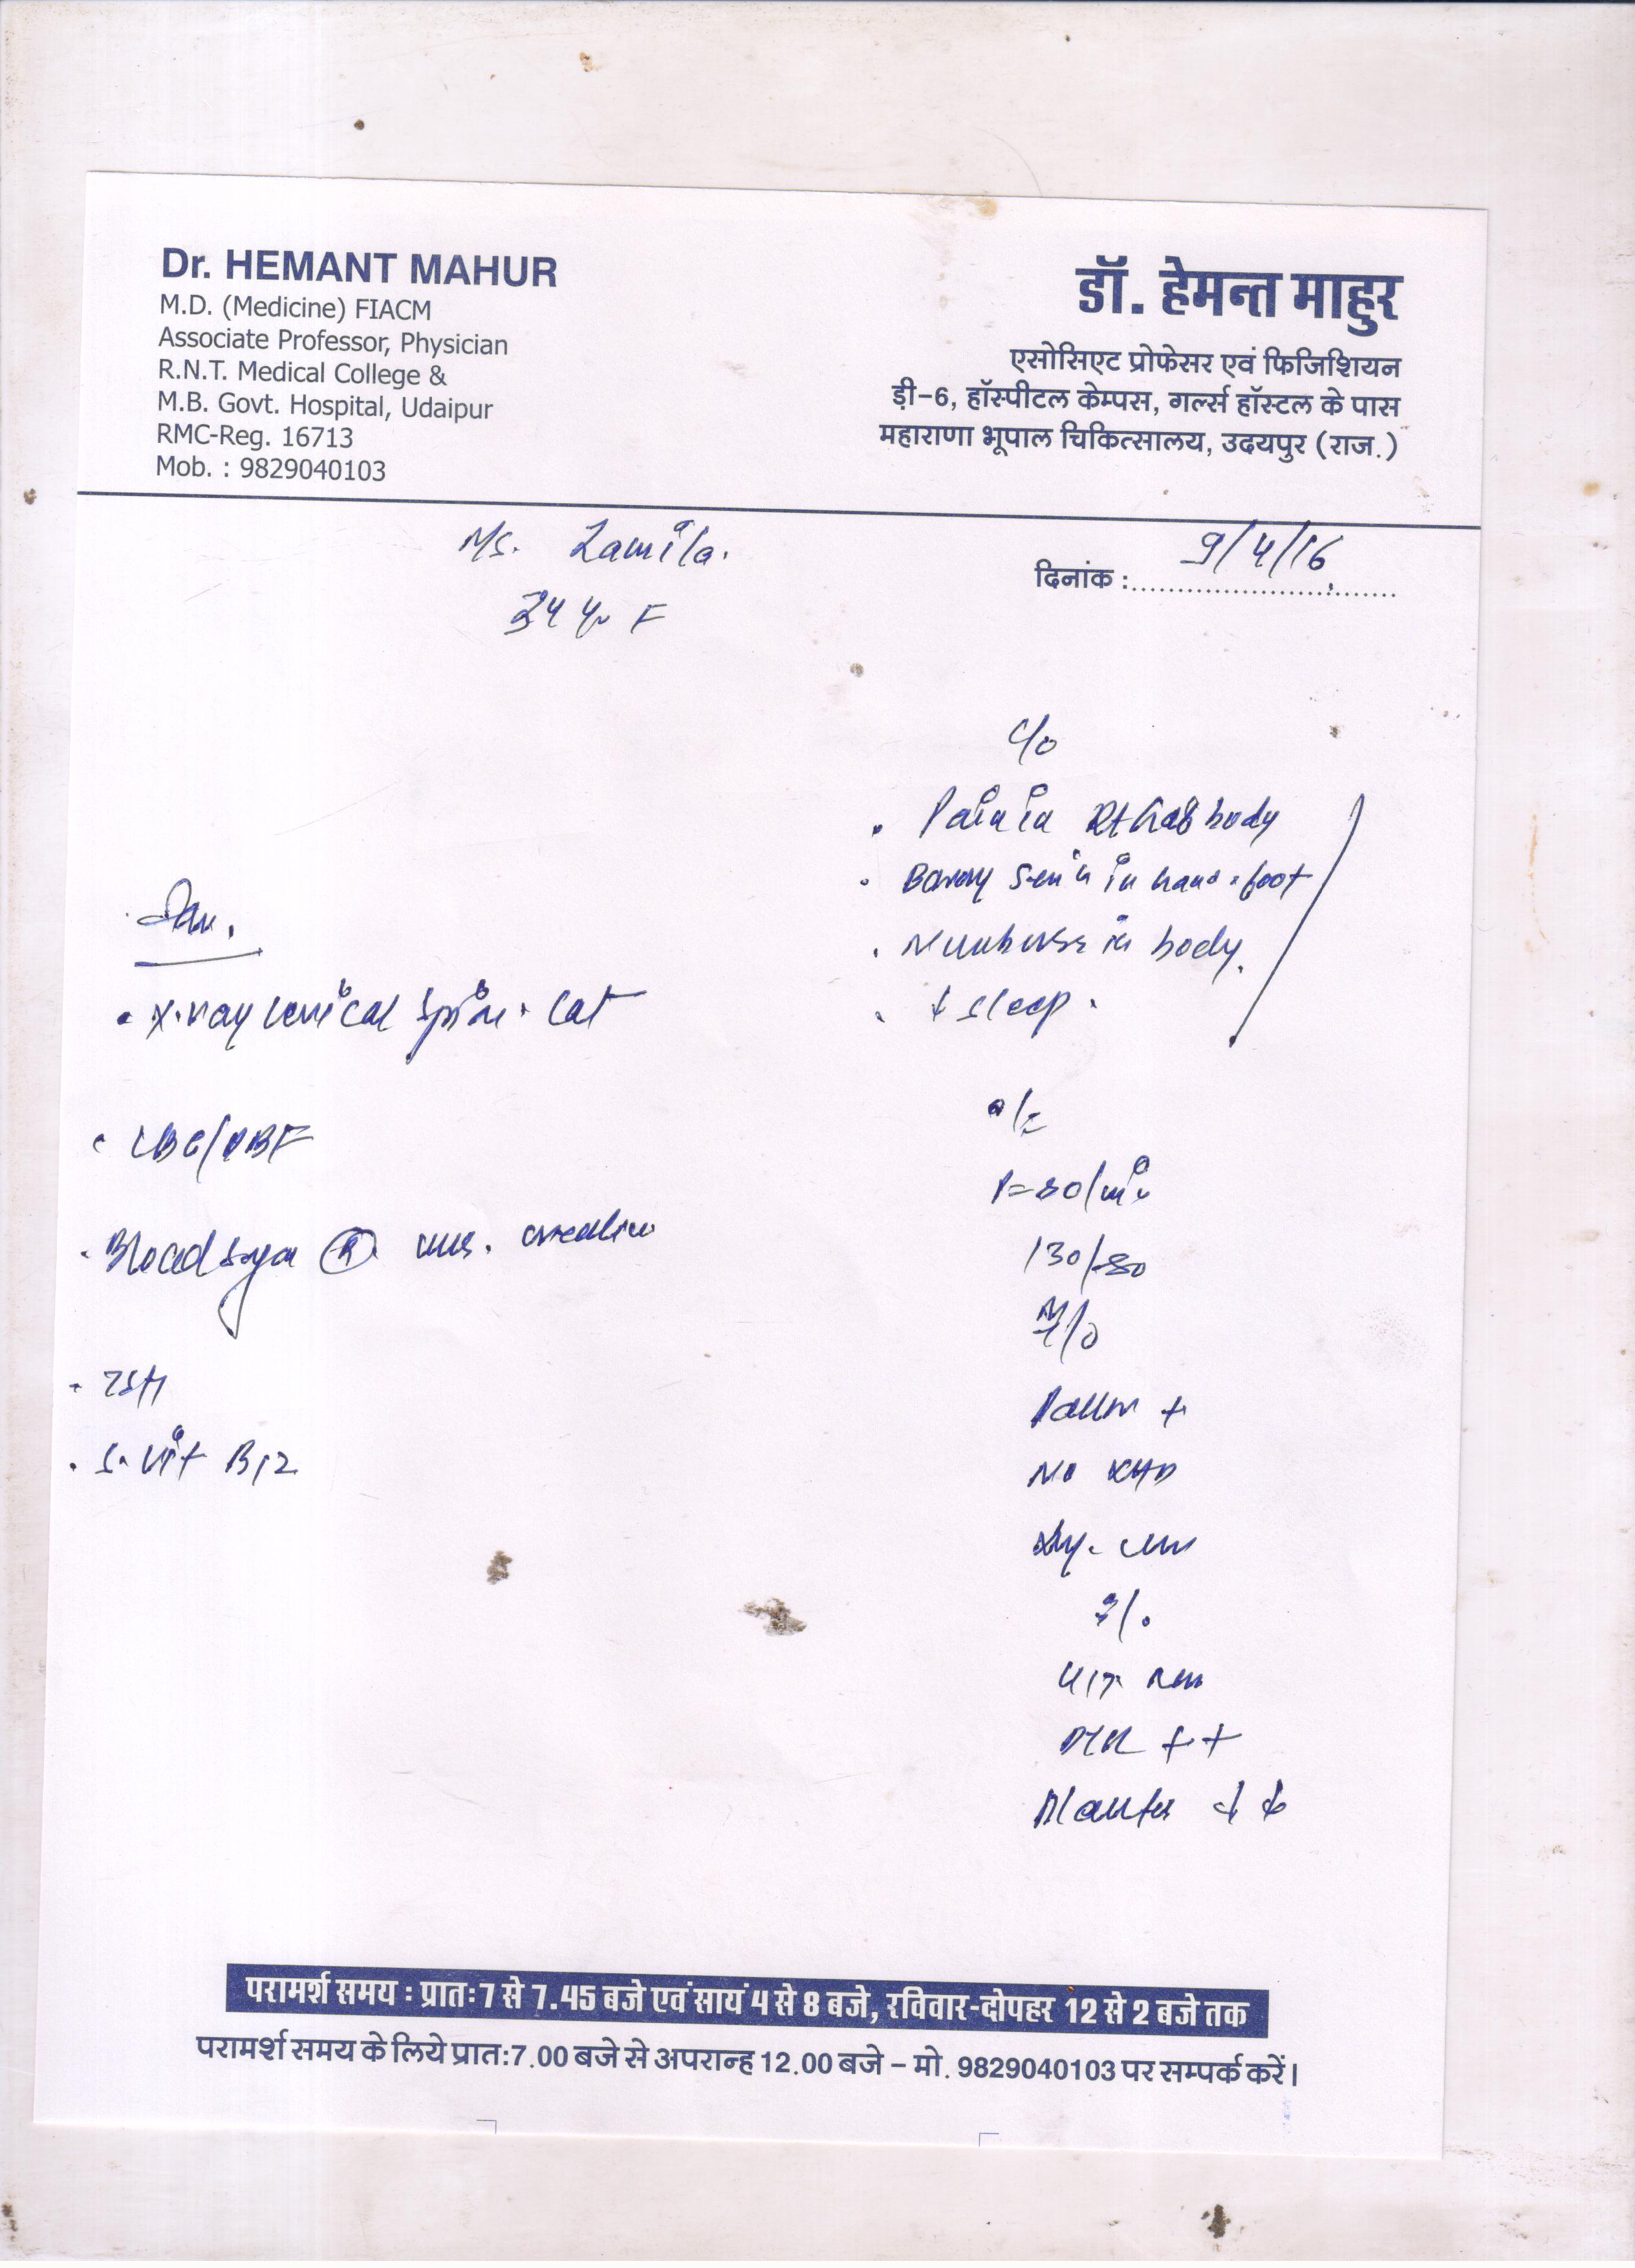 Dr. HEMANT MAHUR
M.D. (Medicine) FIACM
Associate Professor, Physician
R.N.T. Medical College &
M.B. Govt. Hospital, Udaipur
RMC-Reg. 16713
Mob. : 9829040103
डॉ. हेमन्त माहुर
एसोसिएट प्रोफेसर एवं फिजिशियन
ड़ी-6, हॉस्पीटल केम्पस, गर्ल्स हॉस्टल के पास
महाराणा भूपाल चिकित्सालय, उदयपुर (राज.)
Ms. Zamila.
दिनांक : 9/4/16
34 yr F
c/o
. Pain in Rt half body
. in hand + foot
. Numbness in body.
. ↓ sleep.
• X-ray cervical spine. Lat
. CBC/PBF
. Blood sugar (R) urea. creatinine
. TSH
. S. Vit B12
o/E
P=80/min
130/80
Pallor +
No
DTR ++
Planter ↓ ↓
परामर्श समय : प्रातः7 से 7.45 बजे एवं सायं 4 से 8 बजे, रविवार-दोपहर 12 से 2 बजे तक
परामर्श समय के लिये प्रातः7.00 बजे से अपरान्ह 12.00 बजे – मो. 9829040103 पर सम्पर्क करें।